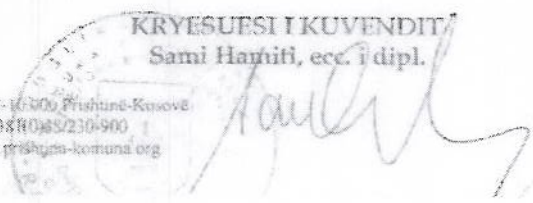 KRYESUESI I KUVENDIT
Sami Hamiti, ecc. i dipl.
10 000 Prishtinë-Kosovë
(0)38/230-900
prishtina-komuna.org